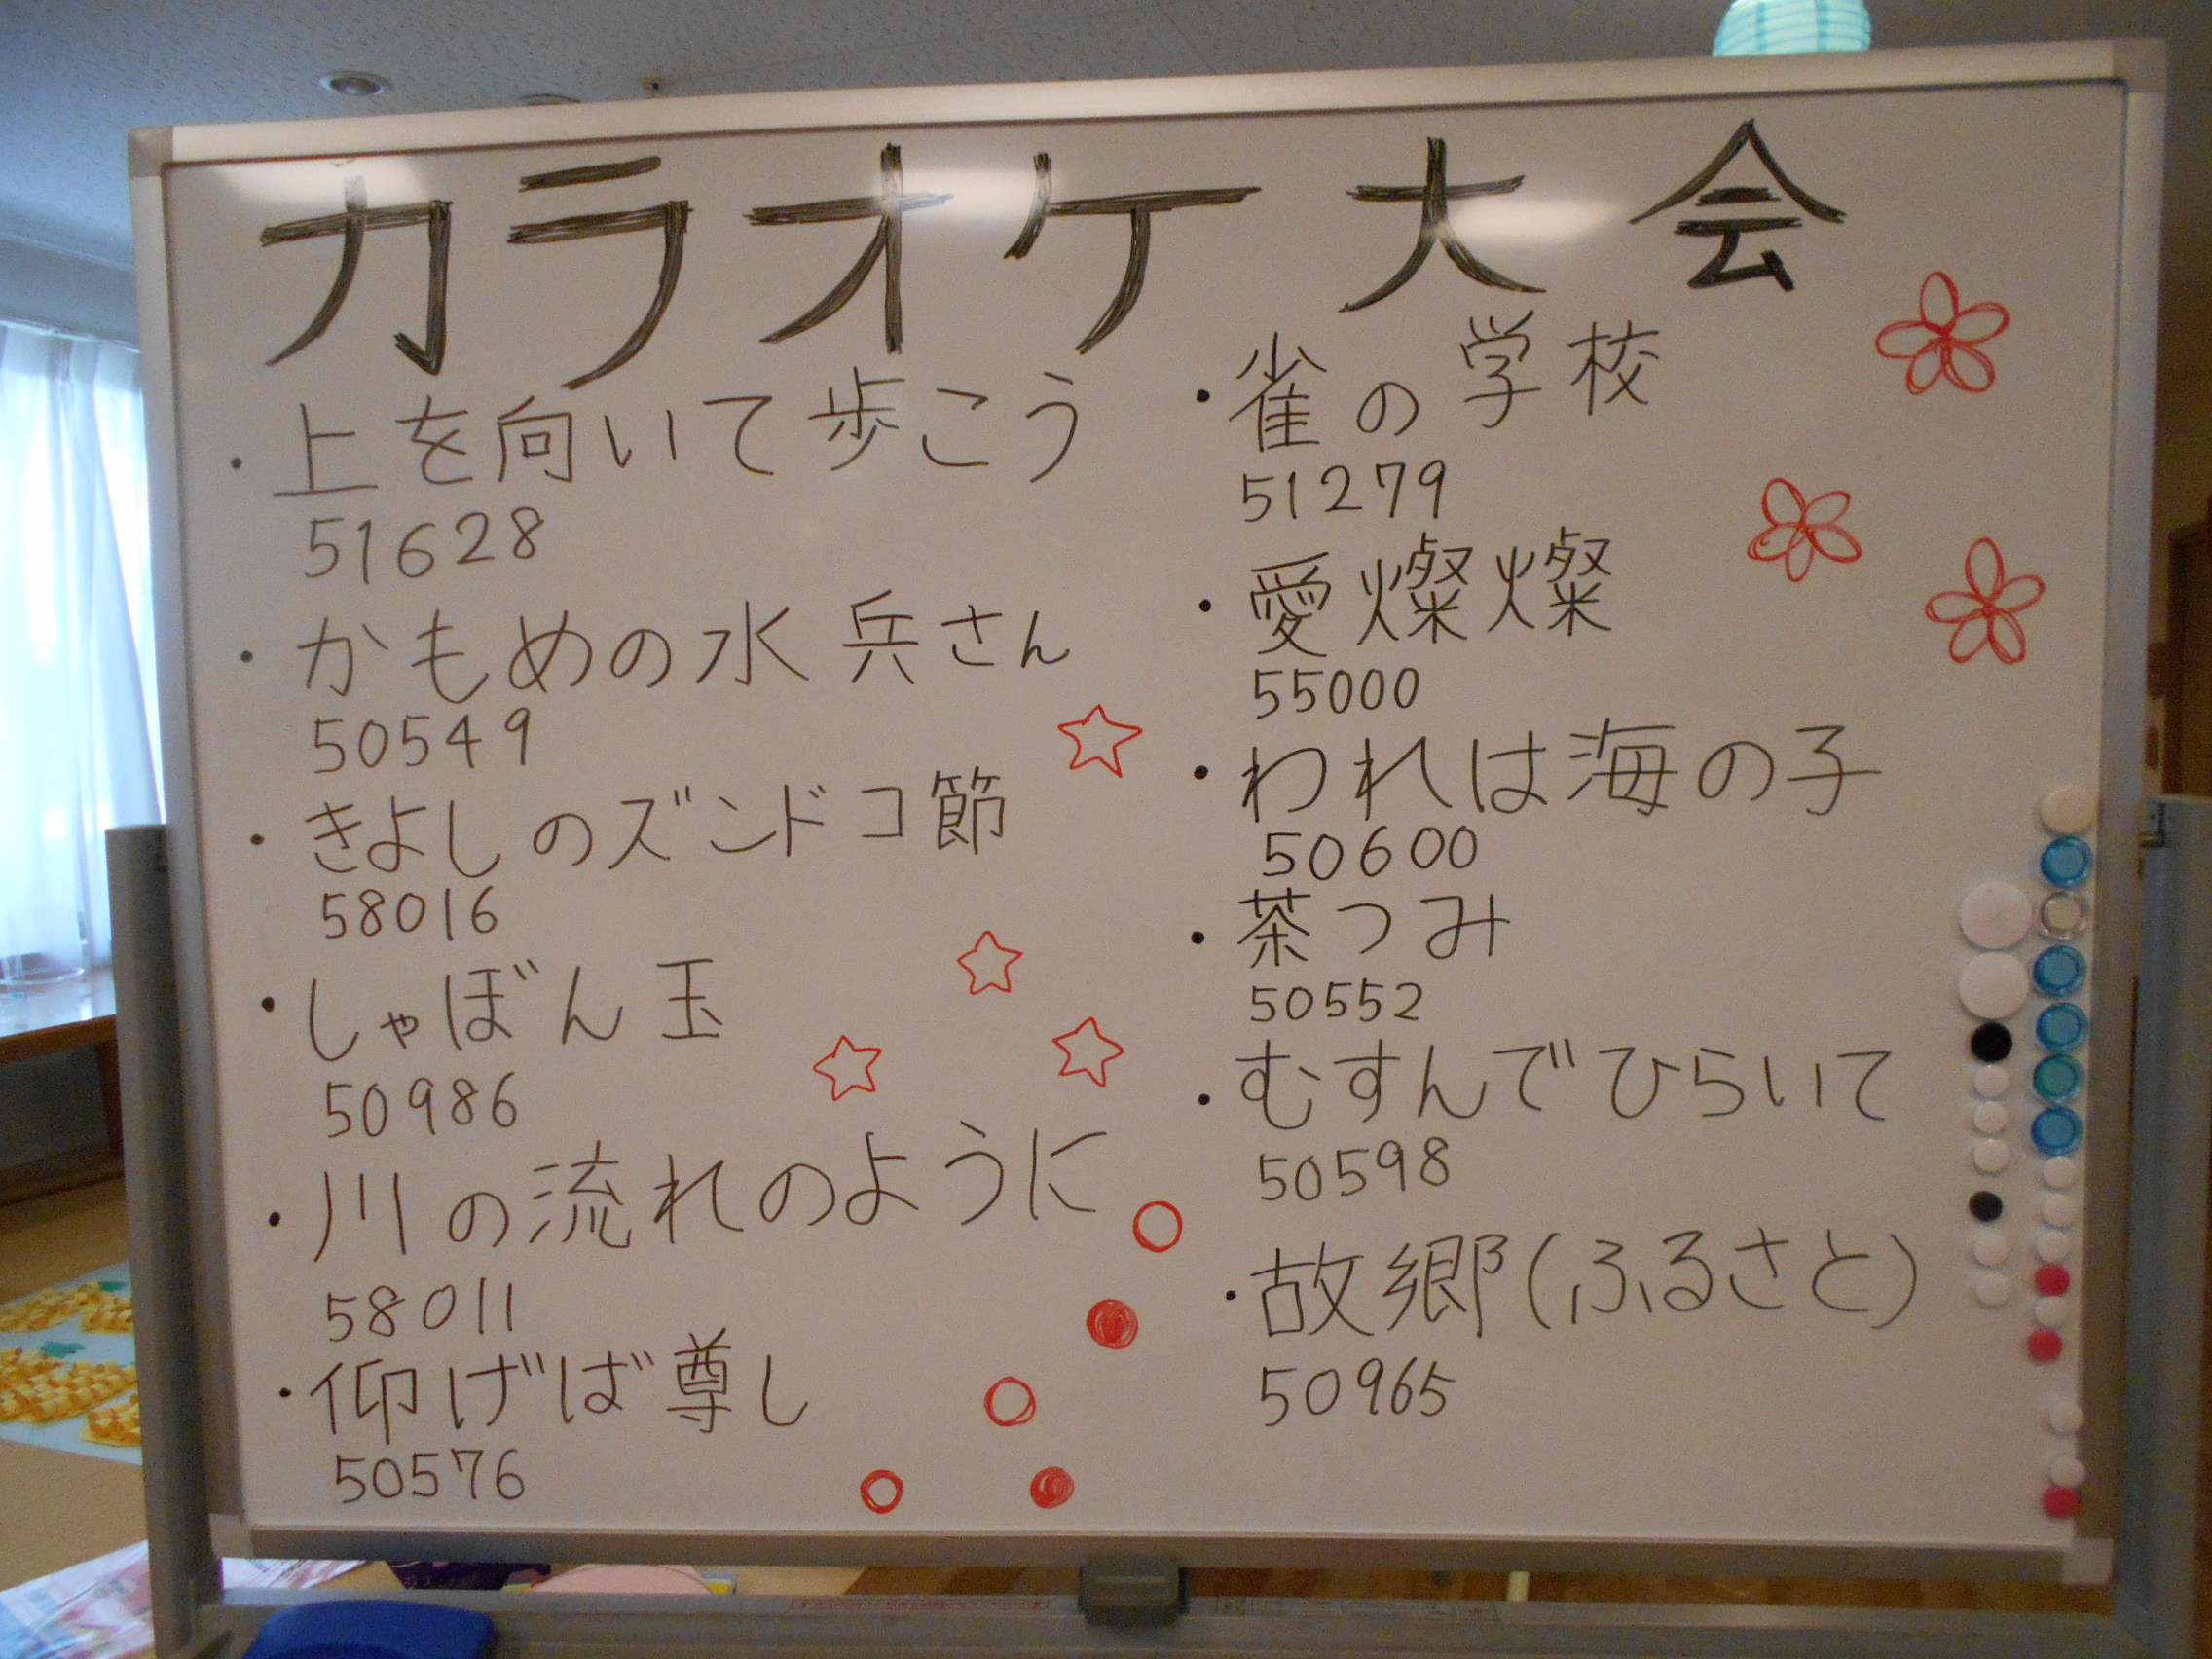 カラオケ大会
・上を向いて歩こう
51628
・かもめの水兵さん
50549
・きよしのズンドコ節
58016
・しゃぼん玉
50986
・川の流れのように
58011
・仰げば尊し
50576
・雀の学校
51279
・愛燦燦
55000
・われは海の子
50600
・茶つみ
50552
・むすんでひらいて
50598
・故郷(ふるさと)
50965